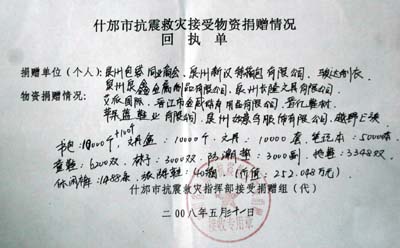 什邡市抗震救灾接受物资捐赠情况
回执单
捐赠单位（个人）：泉州包袋同业商会、泉州新汉特箱包有限公司、
物资捐赠情况：泉州泉鑫金属制品有限公司、泉州长隆文具有限公司
艾派国际、晋江市金威体育用品有限公司、
苹果蓝鞋业有限公司、泉州 服饰有限公司、
书包：10000个+100个 文具盒：10000个、文具：10000套、笔记本：50000本
童鞋：6200双、袜子：3000双、防潮垫：3000副、拖鞋：3348双
休闲裤：1488条、旅游鞋：40双（价值：252.048万元）
什邡市抗震救灾指挥部接受捐赠组（代）
接收专用章
二〇〇八年五月三十一日